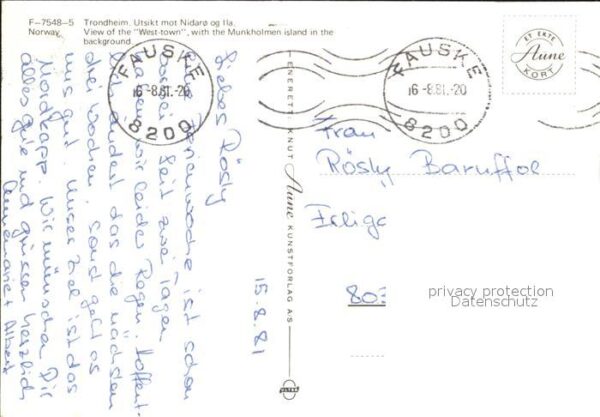 F-7548-5 Trondheim. Utsikt mot Nidarø og Ila.
Norway. View of the "West-town", with the Munkholmen island in the
background.
FAUSKE
16-8.81.-20
8200
FAUSKE
16-8.81.-20
8200
ET EKTE
Aune
KORT
ENERETT: KNUT Aune KUNSTFORLAG A/S
ULTRA
15.8.81
Liebes Rösly
Ferienwoche ist schon
seit zwei Tagen
haben wir leider Regen. Hoffent-
lich ändert das die nächsten
drei Wochen. Sonst geht es
uns gut. Unser Ziel ist das
Nordkapp. Wir wünschen Dir
alles gute und grüssen herzlich
Annemarie + Albert
Frau
Rösly Baruffol
803
privacy protection
Datenschutz